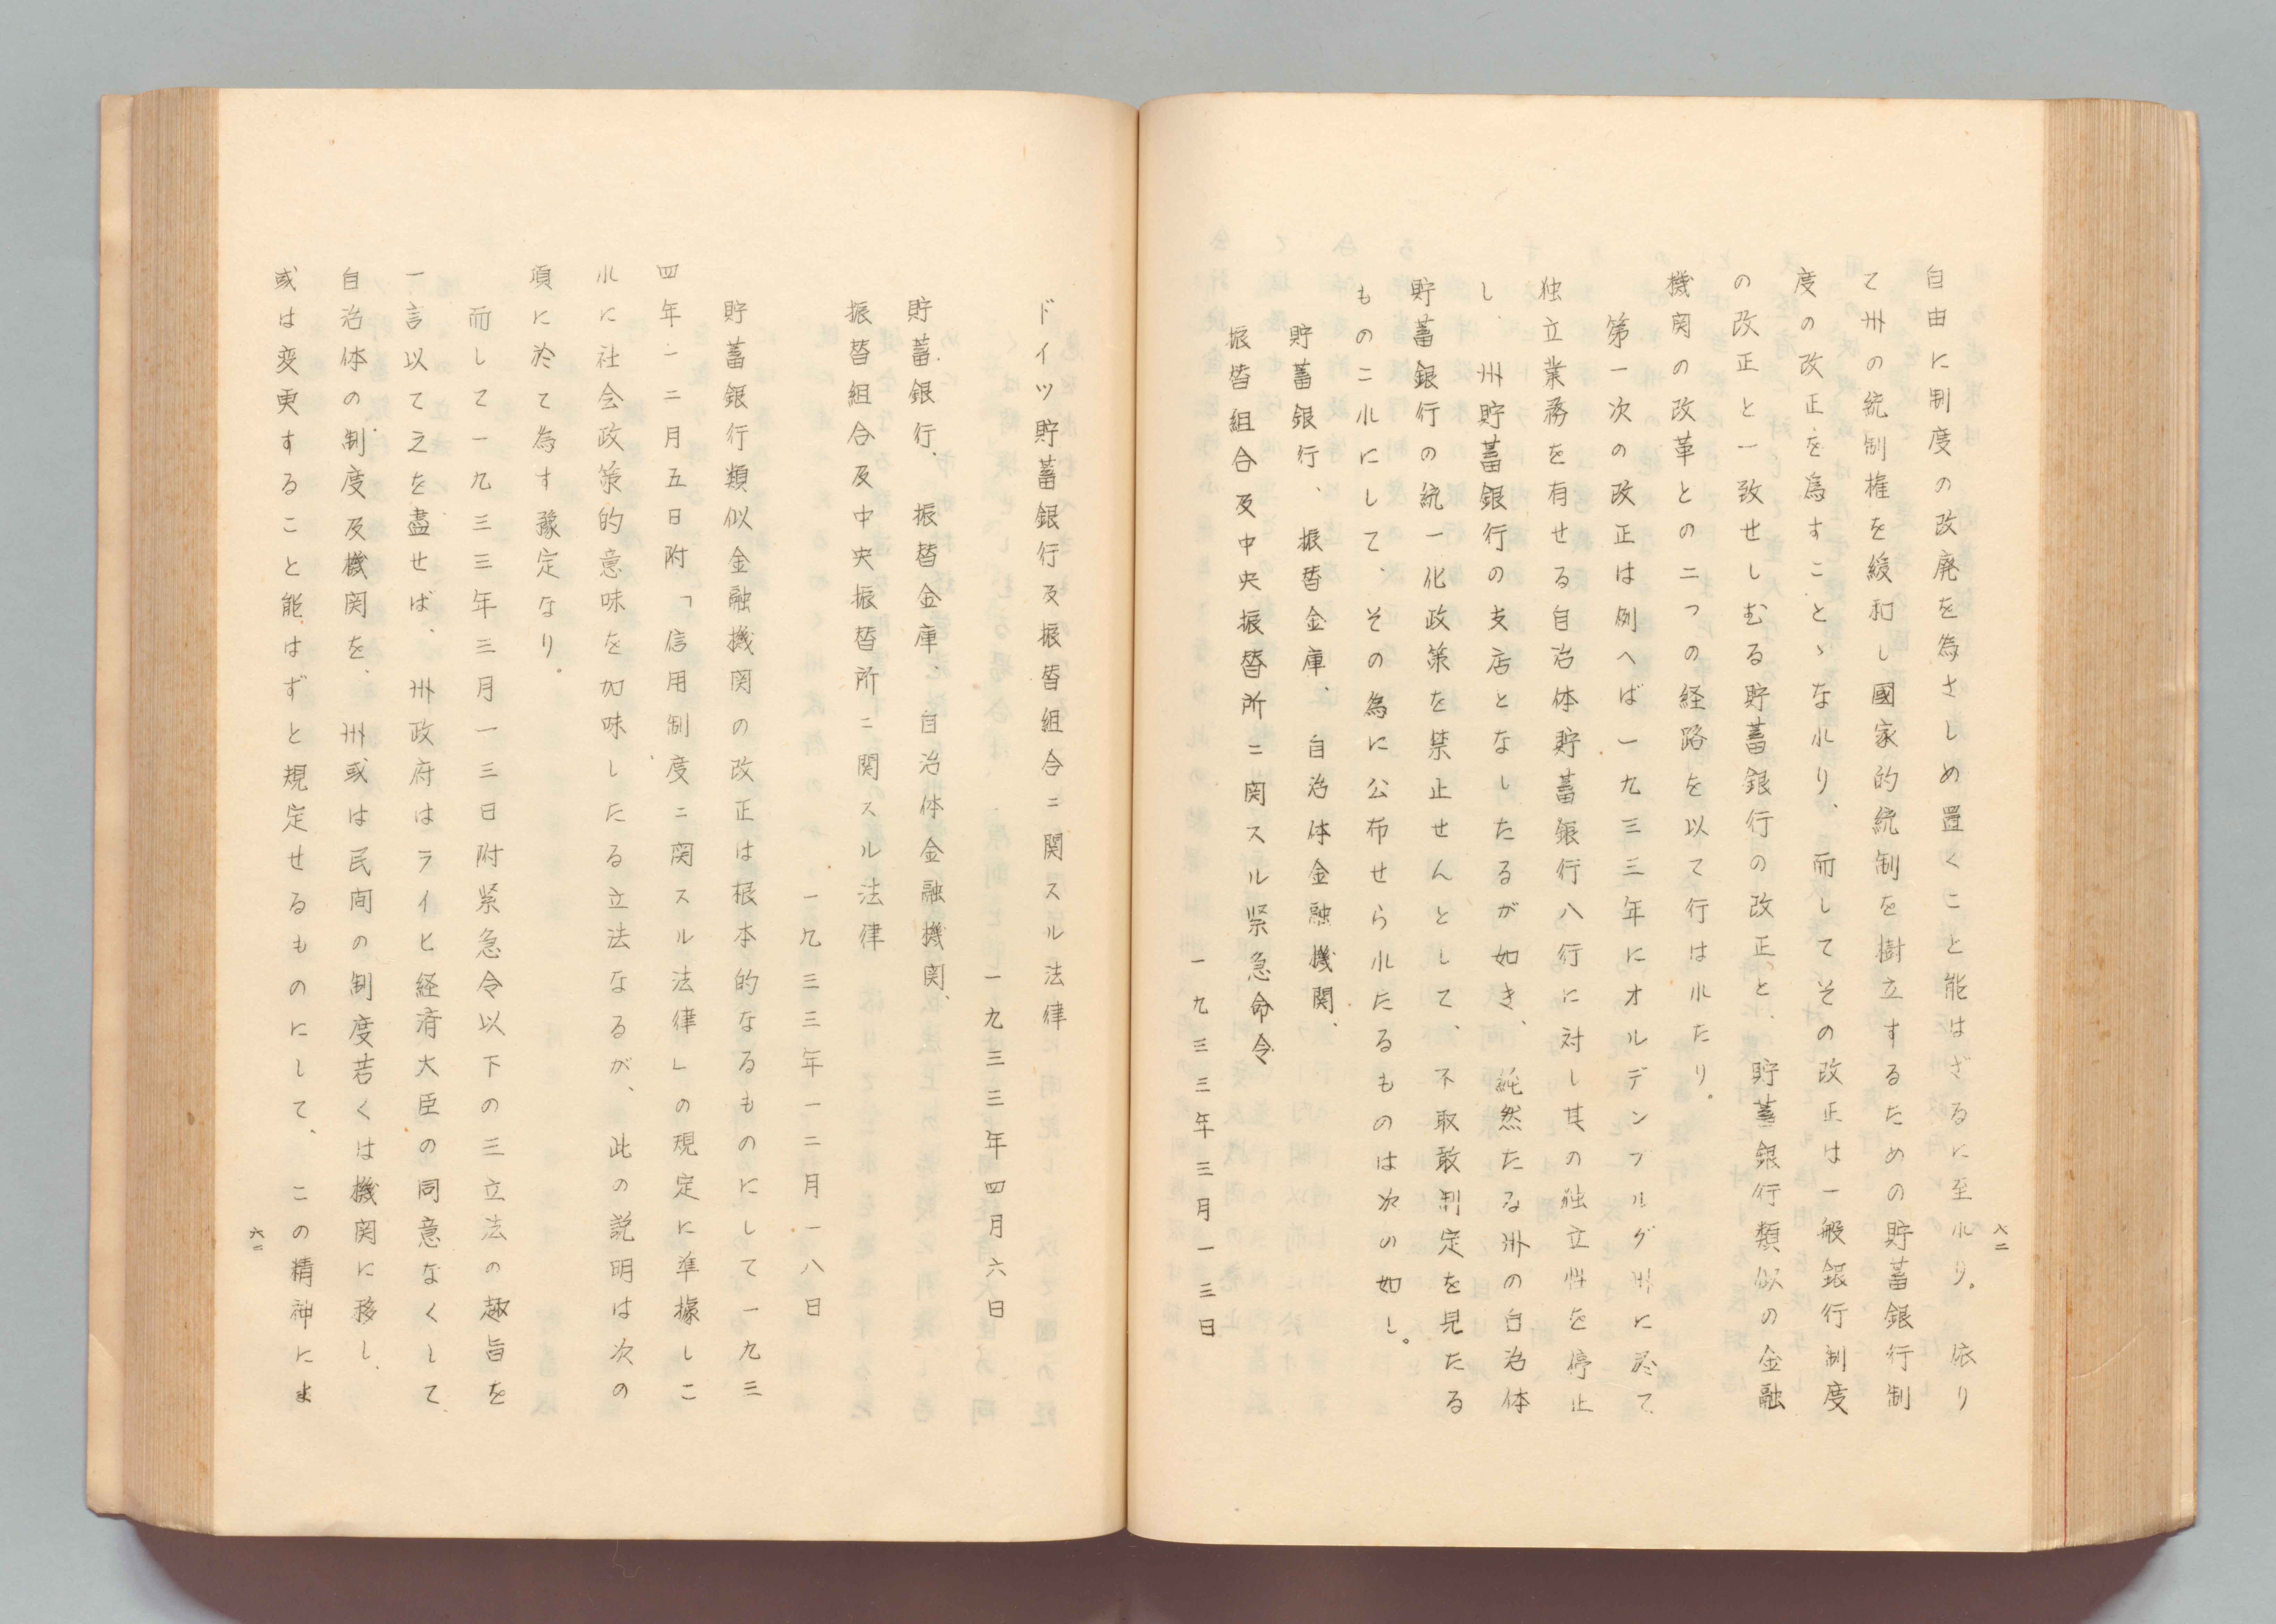 自由に制度の改廃を為さしめ置くこと能はざるに至れり。依り
て州の統制権を緩和し國家的統制を樹立するための貯蓄銀行制
度の改正を為すことゝなれり、而してその改正は一般銀行制度
の改正と一致せしむる貯蓄銀行の改正と、貯蓄銀行類似の金融
機関の改革との二つの経路を以て行はれたり。
第一次の改正は例へば一九三三年にオルデンブルグ州に於て
独立業務を有せる自治体貯蓄銀行八行に対し其の独立性を停止
し、州貯蓄銀行の支店となしたるが如き、純然たる州の自治体
貯蓄銀行の統一化政策を禁止せんとして、不取敢制定を見たる
ものこれにして、その為に公布せられたるものは次の如し。
貯蓄銀行、振替金庫、自治体金融機関、
振替組合及中央振替所ニ関スル緊急命令
一九三三年三月一三日
六二
ドイツ貯蓄銀行及振替組合ニ関スル法律
一九三三年四月六日
貯蓄銀行、振替金庫、自治体金融機関、
振替組合及中央振替所ニ関スル法律
一九三三年一二月一八日
貯蓄銀行類似金融機関の改正は根本的なるものにして一九三
四年一二月五日附「信用制度ニ関スル法律」の規定に準據しこ
れに社会政策的意味を加味したる立法なるが、此の説明は次の
項に於て為す豫定なり。
而して一九三三年三月一三日附緊急令以下の三立法の趣旨を
一言以て之を盡せば、州政府はライヒ経済大臣の同意なくして、
自治体の制度及機関を、州或は民間の制度若くは機関に移し、
或は変更すること能はずと規定せるものにして、この精神によ
六二